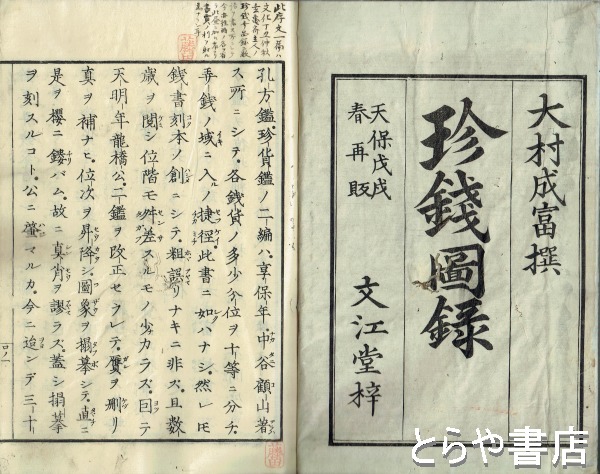 大村成富撰
珍錢圖録
天保戊戌
春再版
文江堂梓
孔方鑑、珍貨鑑ノ二編ハ、享保年、中谷顧山著
ス所ニシテ、各錢貨ノ多少分位ヲ十等ニ分チ、
弄錢ノ域ニ入ノ捷徑、此書ニ如ハナシ、然レ𪜈
錢書刻本ノ創ニシテ、粗誤リナキニ非ズ、且數
歳ヲ閲シ位階モ舛差スルモノ少カラズ、囙テ
天明年、龍橋公、二鑑ヲ改正セウレテ、贋ヲ刪リ
真ヲ補ナヒ、位次ヲ昇降シ、圖象ヲ搨摹シテ、直ニ
是ヲ櫻ニ鏤バム、故ニ真肖ヲ謬ラズ、蓋シ搨摹
ヲ刻スルコト、公ニ肇マルカ、今ニ迨ンデ三十
とらや書店